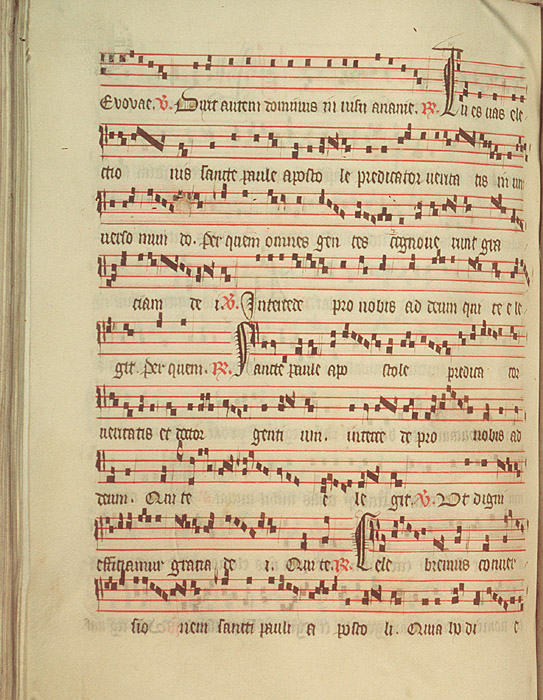 Evovae. V. Dixit autem dominus in iusti ananie. R. Tu es vas ele
ctio nis sancte paule aposto le predicator verita tis in uni
verso mun do. Per quem omnes gen tes cognove runt gra
ciam de i. V. Intercede pro nobis ad deum qui te e le
git. Per quem. R. Sancte paule apo stole predica tor
veritatis et doctor genti um. intercede de pro nobis ad
deum. Qui te e le git. V. Vt digni
efficiamur gratia de i. Qui te. R. Cele bremus conver
sio nem sancti pauli a posto li. Quia ho di e